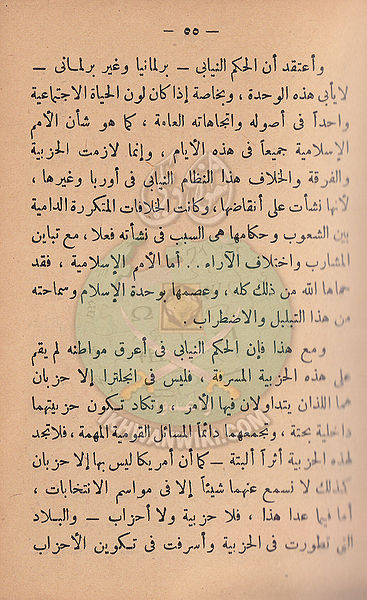 — ٥٥ —
وأعتقد أن الحكم النيابى — برلمانيا وغير برلمانى —
لا يأبى هذه الوحدة ، وبخاصة إذا كان لون الحياة الاجتماعية
واحداً فى أصوله واتجاهاته العامة ، كما هو شأن الأمم
الإسلامية جميعاً فى هذه الأيام ، وإنما لازمت الحزبية
والفرقة والخلاف هذا النظام النيابى فى أوربا وغيرها ،
لأنها نشأت على أنقاضها ، وكانت الخلافات المتكررة الدامية
بين الشعوب وحكامها هى السبب فى نشأته فعلا ، مع تباين
المشارب واختلاف الآراء . . أما الأمم الإسلامية ، فقد
حماها الله من ذلك كله ، وعصمها بوحدة الإسلام وسماحته
من هذا التبلبل والاضطراب .
ومع هذا فإن الحكم النيابى فى أعرق مواطنه لم يقم
على هذه الحزبية المسرفة ، فليس فى انجلترا إلا حزبان
هما اللذان يتداولان فيها الأمر ، وتكاد تكون حزبيتهما
داخلية بحتة ، وتجمعهما دائماً المسائل القومية المهمة ، فلا تجد
لهذه الحزبية أثراً ألبتة — كما أن أمريكا ليس بها إلا حزبان
كذلك لا نسمع عنهما شيئاً إلا فى مواسم الانتخابات ،
أما فيما عدا هذا ، فلا حزبية ولا أحزاب — والبلاد
التى تطورت فى الحزبية وأسرفت فى تكوين الأحزاب
IKHWANWIKI.COM